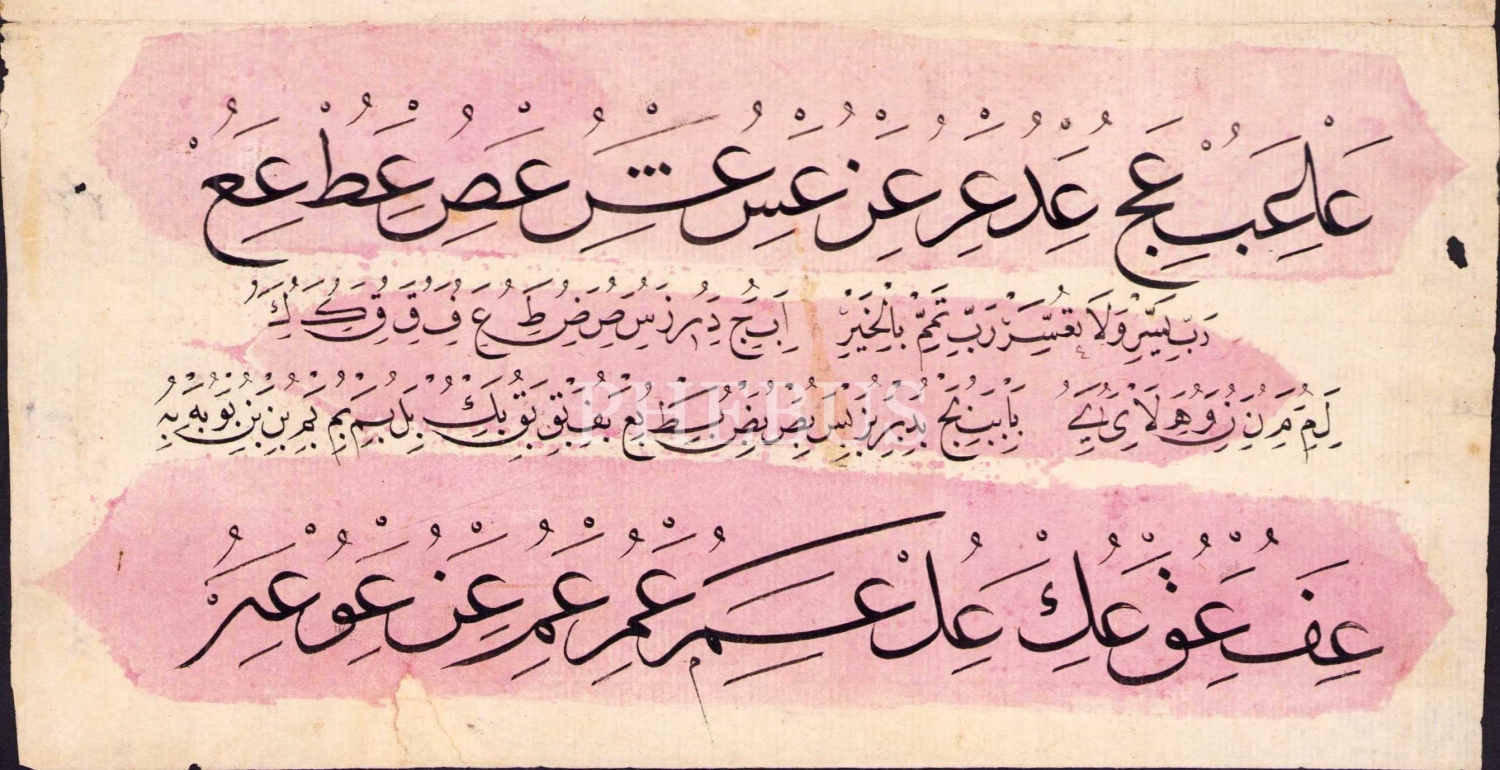 عا عب عج عد عر عز عس عش عص عط عع
رب يسر ولا تعسر رب تمم بالخير ا ب ج د ر ز س ص ض ط ع ف ق ق ك ك
ل م م ن ن و ه لا ى ي با بب بج بد بر بز بس بص بض بط بع بف بق بق بك بل بم بم بم بن بن بن بو به به
PHEBUS
عف عق عك عل عم عم عم عن عو